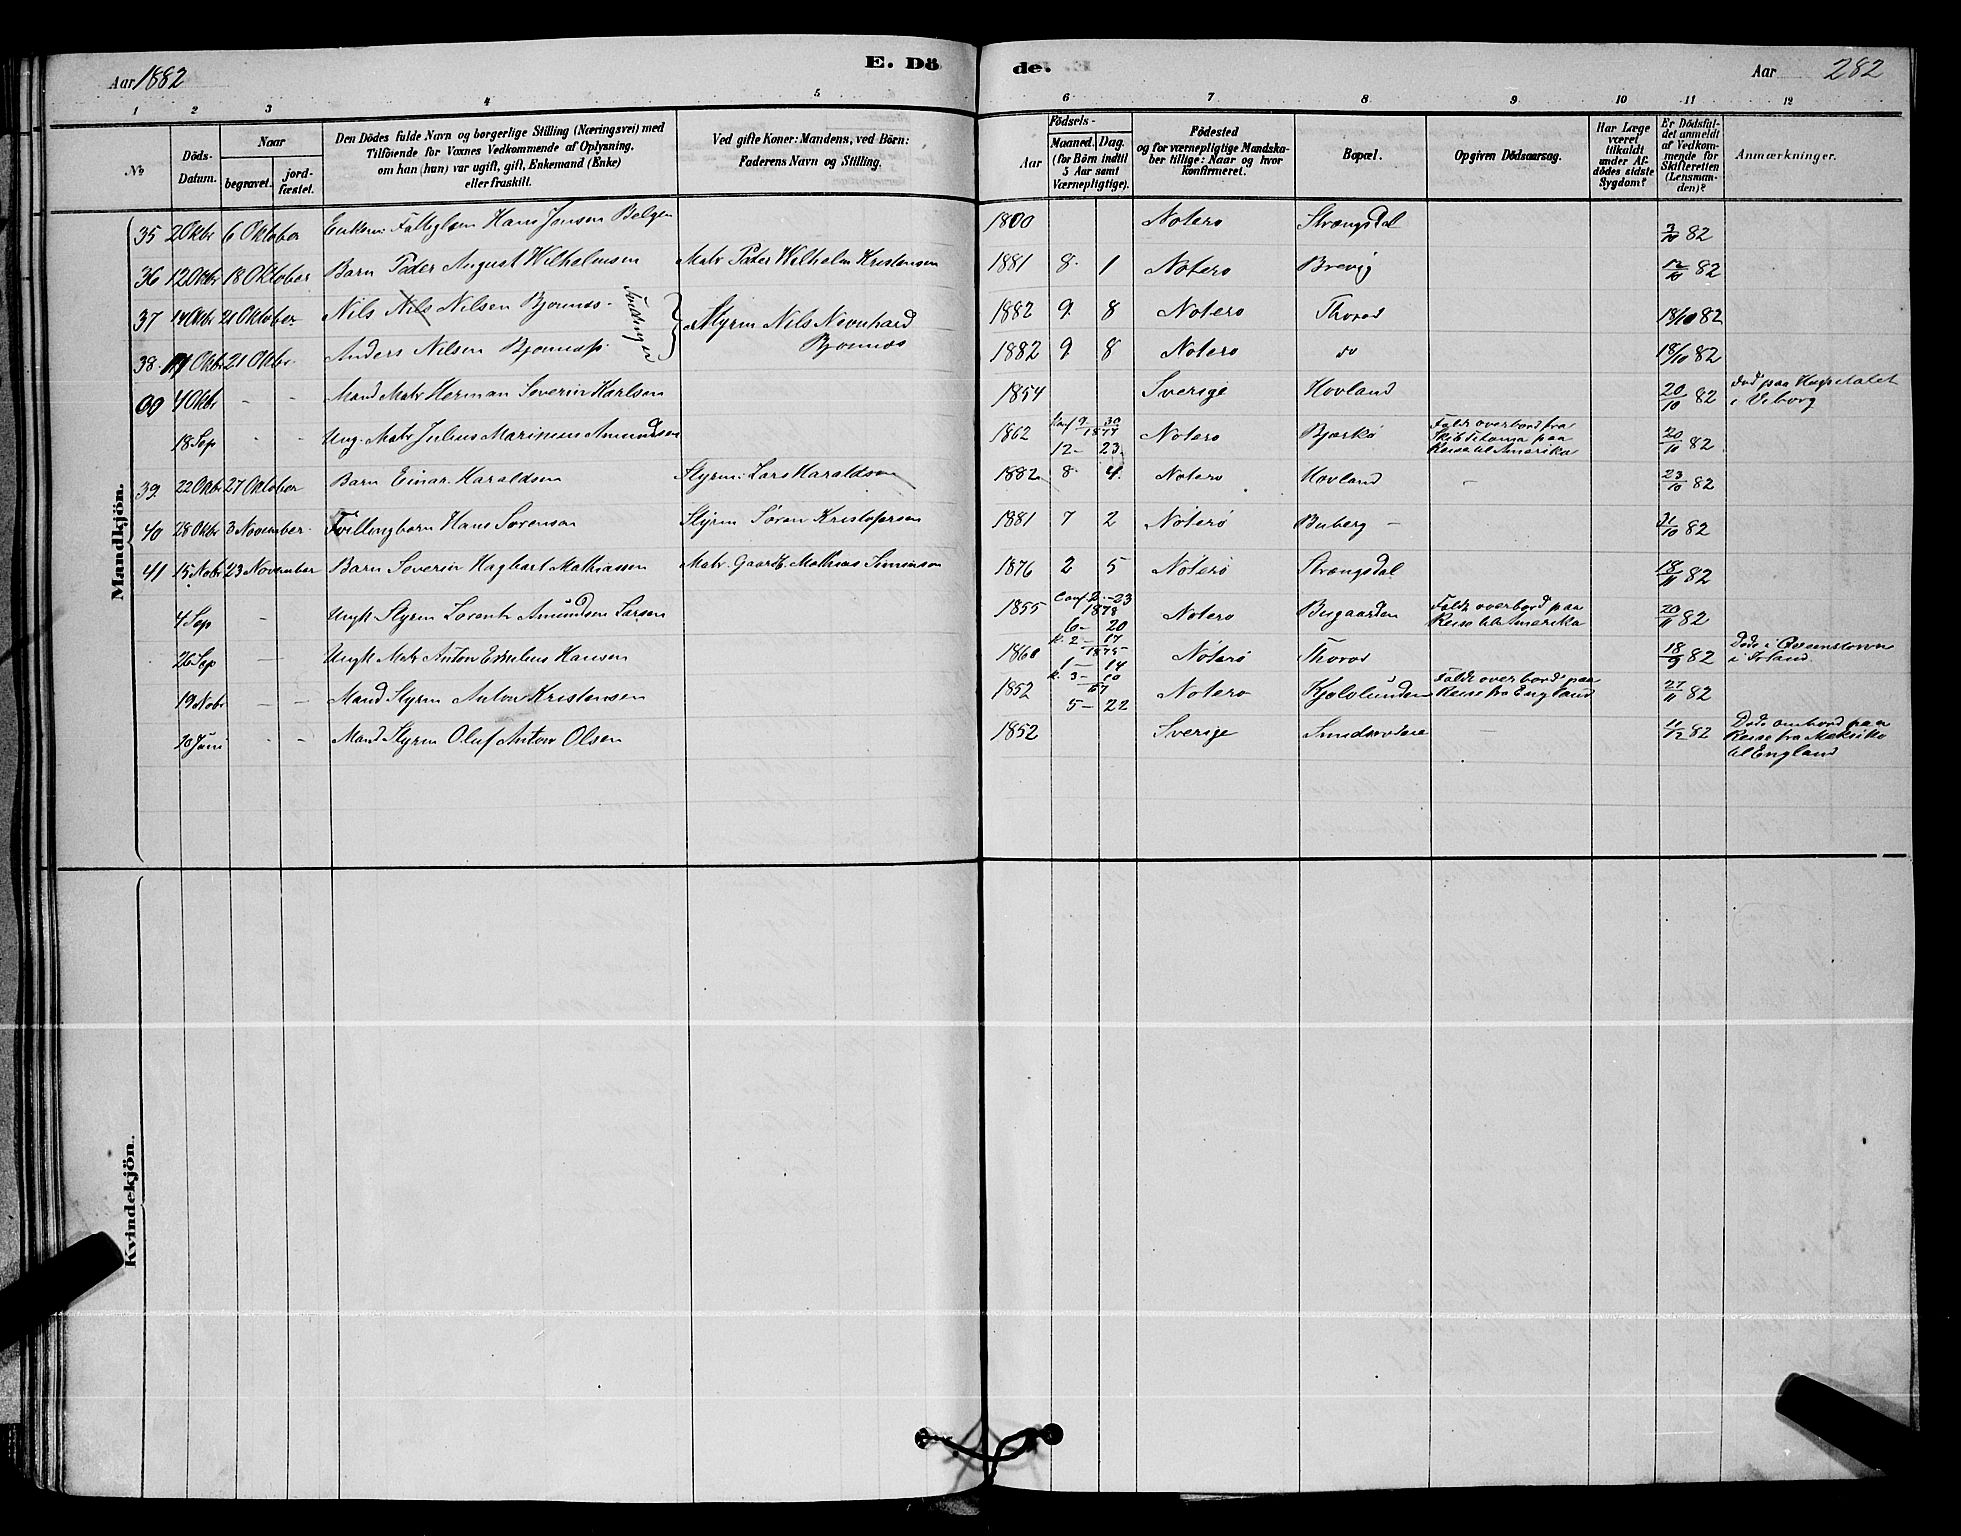 Aar 1882
E. Dö
de.
Aar 282
1 2 3 4 5 6 7 8 9 10 11 12
No
Döds-
Datum.
Naar
begravet.
jord-
fæstet.
Den Dödes fulde Navn og borgerlige Stilling (Næringsvei) med
Tilföiende for Voxnes Vedkommende af Oplysning,
om han (hun) var ugift, gift, Enkemand (Enke)
eller fraskilt.
Ved gifte Koner: Mandens, ved Börn:
Faderens Navn og Stilling.
Födsels-
Aar
Maaned. Dag.
(for Börn indtil
5 Aar samt
Værnepligtige).
Födested
og for værnepligtige Mandska-
ber tillige: Naar og hvor
konfirmeret.
Bopæl.
Opgiven Dödsaarsag.
Har Læge
været
tilkaldt
under Af-
dödes sidste
Sygdom?
Er Dödsfal-
det anmeldt
af Vedkom-
mende for
Skifteretten
(Lensman-
den)?
Anmærkninger.
Mandkjön.
35 2 Oktbr 6 Oktober Hans Jensen Bolgen 1800 Noterø Strængsdal 3/10 82
36 12 Oktbr 18 Oktober Barn Peder August Wilhelmsen Matr Peder Wilhelm Kristensen 1881 8 1 Noterø Brevig 12/10 82
37 14 Oktbr 21 Oktober Nils Nils Nilsen Bjonnes Tvillinger Styrm Nils Nevnhard 1882 9 8 Noterø Thorød 18/10 82
Bjonnes
38 Oktbr 21 Oktbr Anders Nilsen Bjonnes 1882 9 8 Noterø do 18/10 82
4 Oktbr - - Mand Matr Herman Severin Karlsen 1854 Sverige Hovland 20/10 82 Død paa Hospitalet
i Viborg
18 Sep - - Ung. Matr Julius Marinius Amundsen 1862 12 - 23 Noterø Bjerkø Faldt overbord fra
Skib paa
Reise til Amerika 20/10 82
39 22 Oktbr 27 Oktober Barn Einar Haraldsen Styrm. Lars Haraldsen 1882 8 4 Noterø Hovland - 23/10 82
40 28 Oktbr 3 November Tvillingbarn Hans Sorensen Styrm Søren Kristofersen 1881 7 2 Nøterø Buberg - 31/10 82
41 15 Nobr 23 November Barn Severin Hagbart Mathiassen Matr. Gaardb. Mathias Simensen 1876 2 5 Nøterø Strængsdal 18/11 82
4 Sep - Ungk Styrm Lorentz Amundsen Larsen 1855 6 - 20 Noterø Bugaarden Faldt overbord paa
Reise til Amerika 20/11 82
26 Sep - Ungk Matr Anton Emelius Hansen 1860 1 - 14 Nøterø Thorød 18/9 82 Døde i Qveenstown
i Irland.
19 Nobr - - Mand Styrm Anton Kristensen 1852 5 - 22 Noterø Kjolvlunden Faldt overbord paa
Reise fra England 27/11 82
20 Juni - - Mand Styrm Oluf Anton Olsen 1852 Sverige - 11/12 82 Døde ombord paa
Reise fra Meksiko
til England
Kvindekjön.